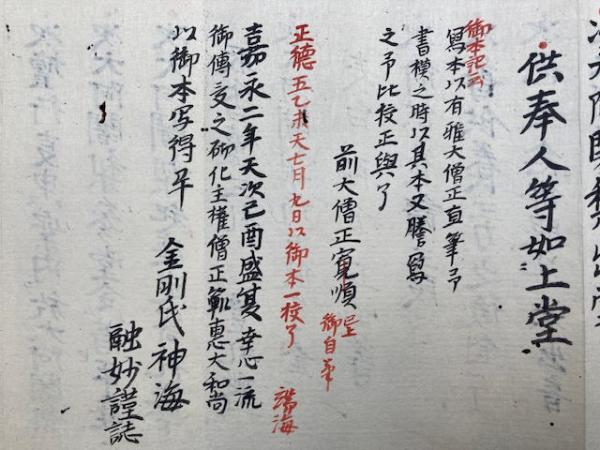 供奉人等如上堂
御本記云
写本以有雅大僧正直筆予
書模之時以其本又謄写
之予比校正與了
前大僧正寛順
御自筆
正徳五乙未天七月九日以御本一校了
嘉永二年天次己酉盛夏幸心一流
御傳受之砌化主権僧正範惠大和尚
以御本写得畢
金剛氏神海
融妙謹誌